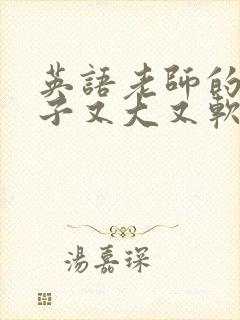 英語老師的
子又大又軟
湯嘉琛